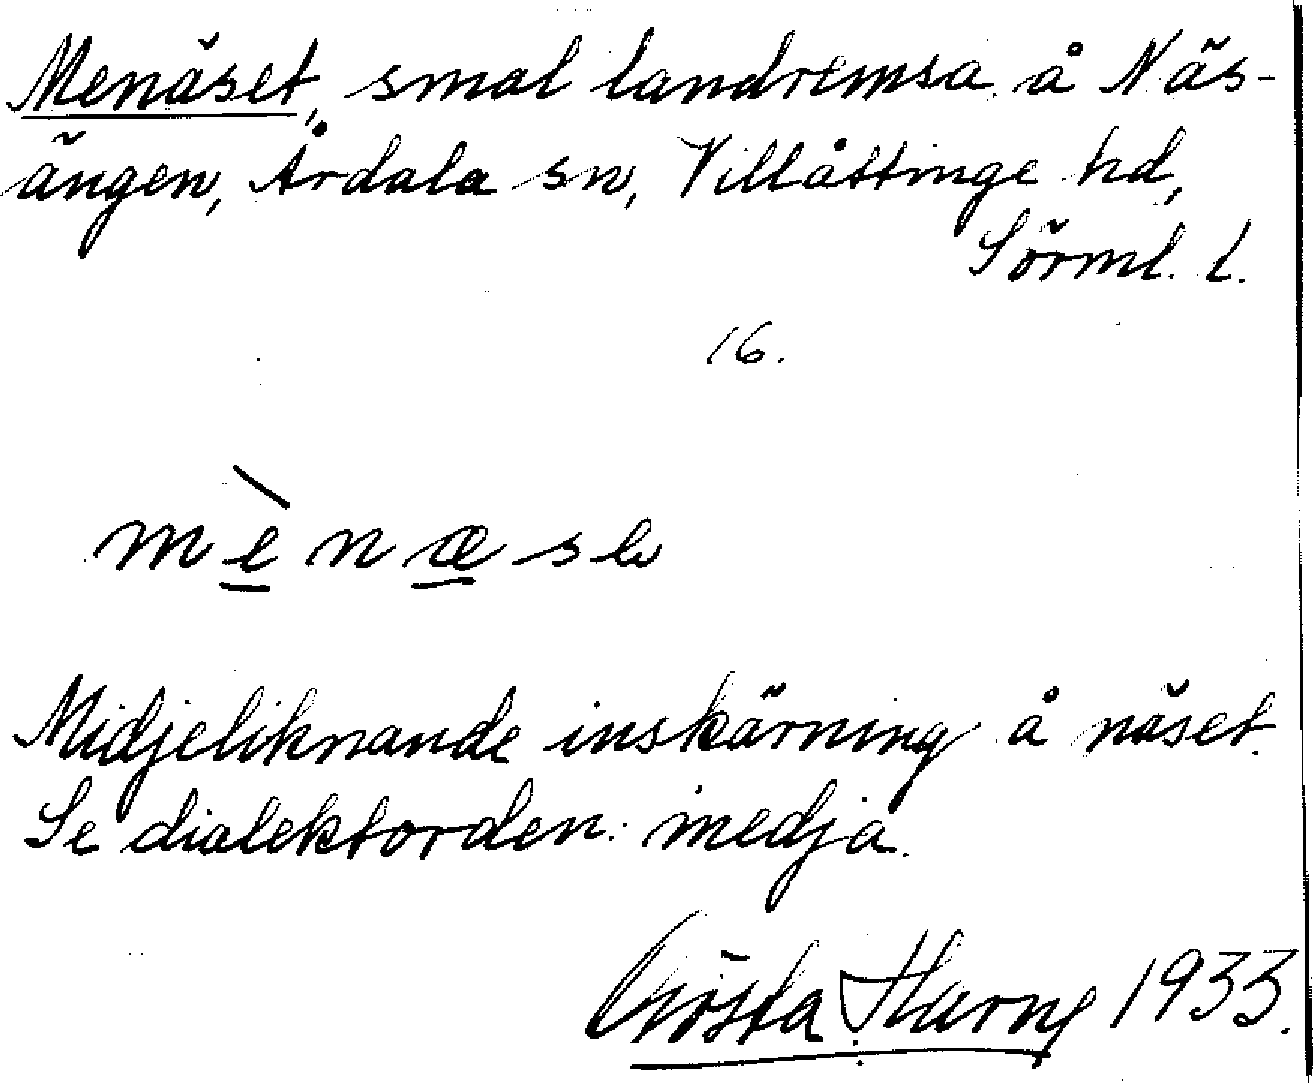 Menäset, smal landremsa å Näs-
ängen, Årdala sn, Villåttinge hd,
Sörml. l.
16.
mènæse
Midjeliknande inskärning å näset.
Se dialektorden: medja.
Gösta 1933.